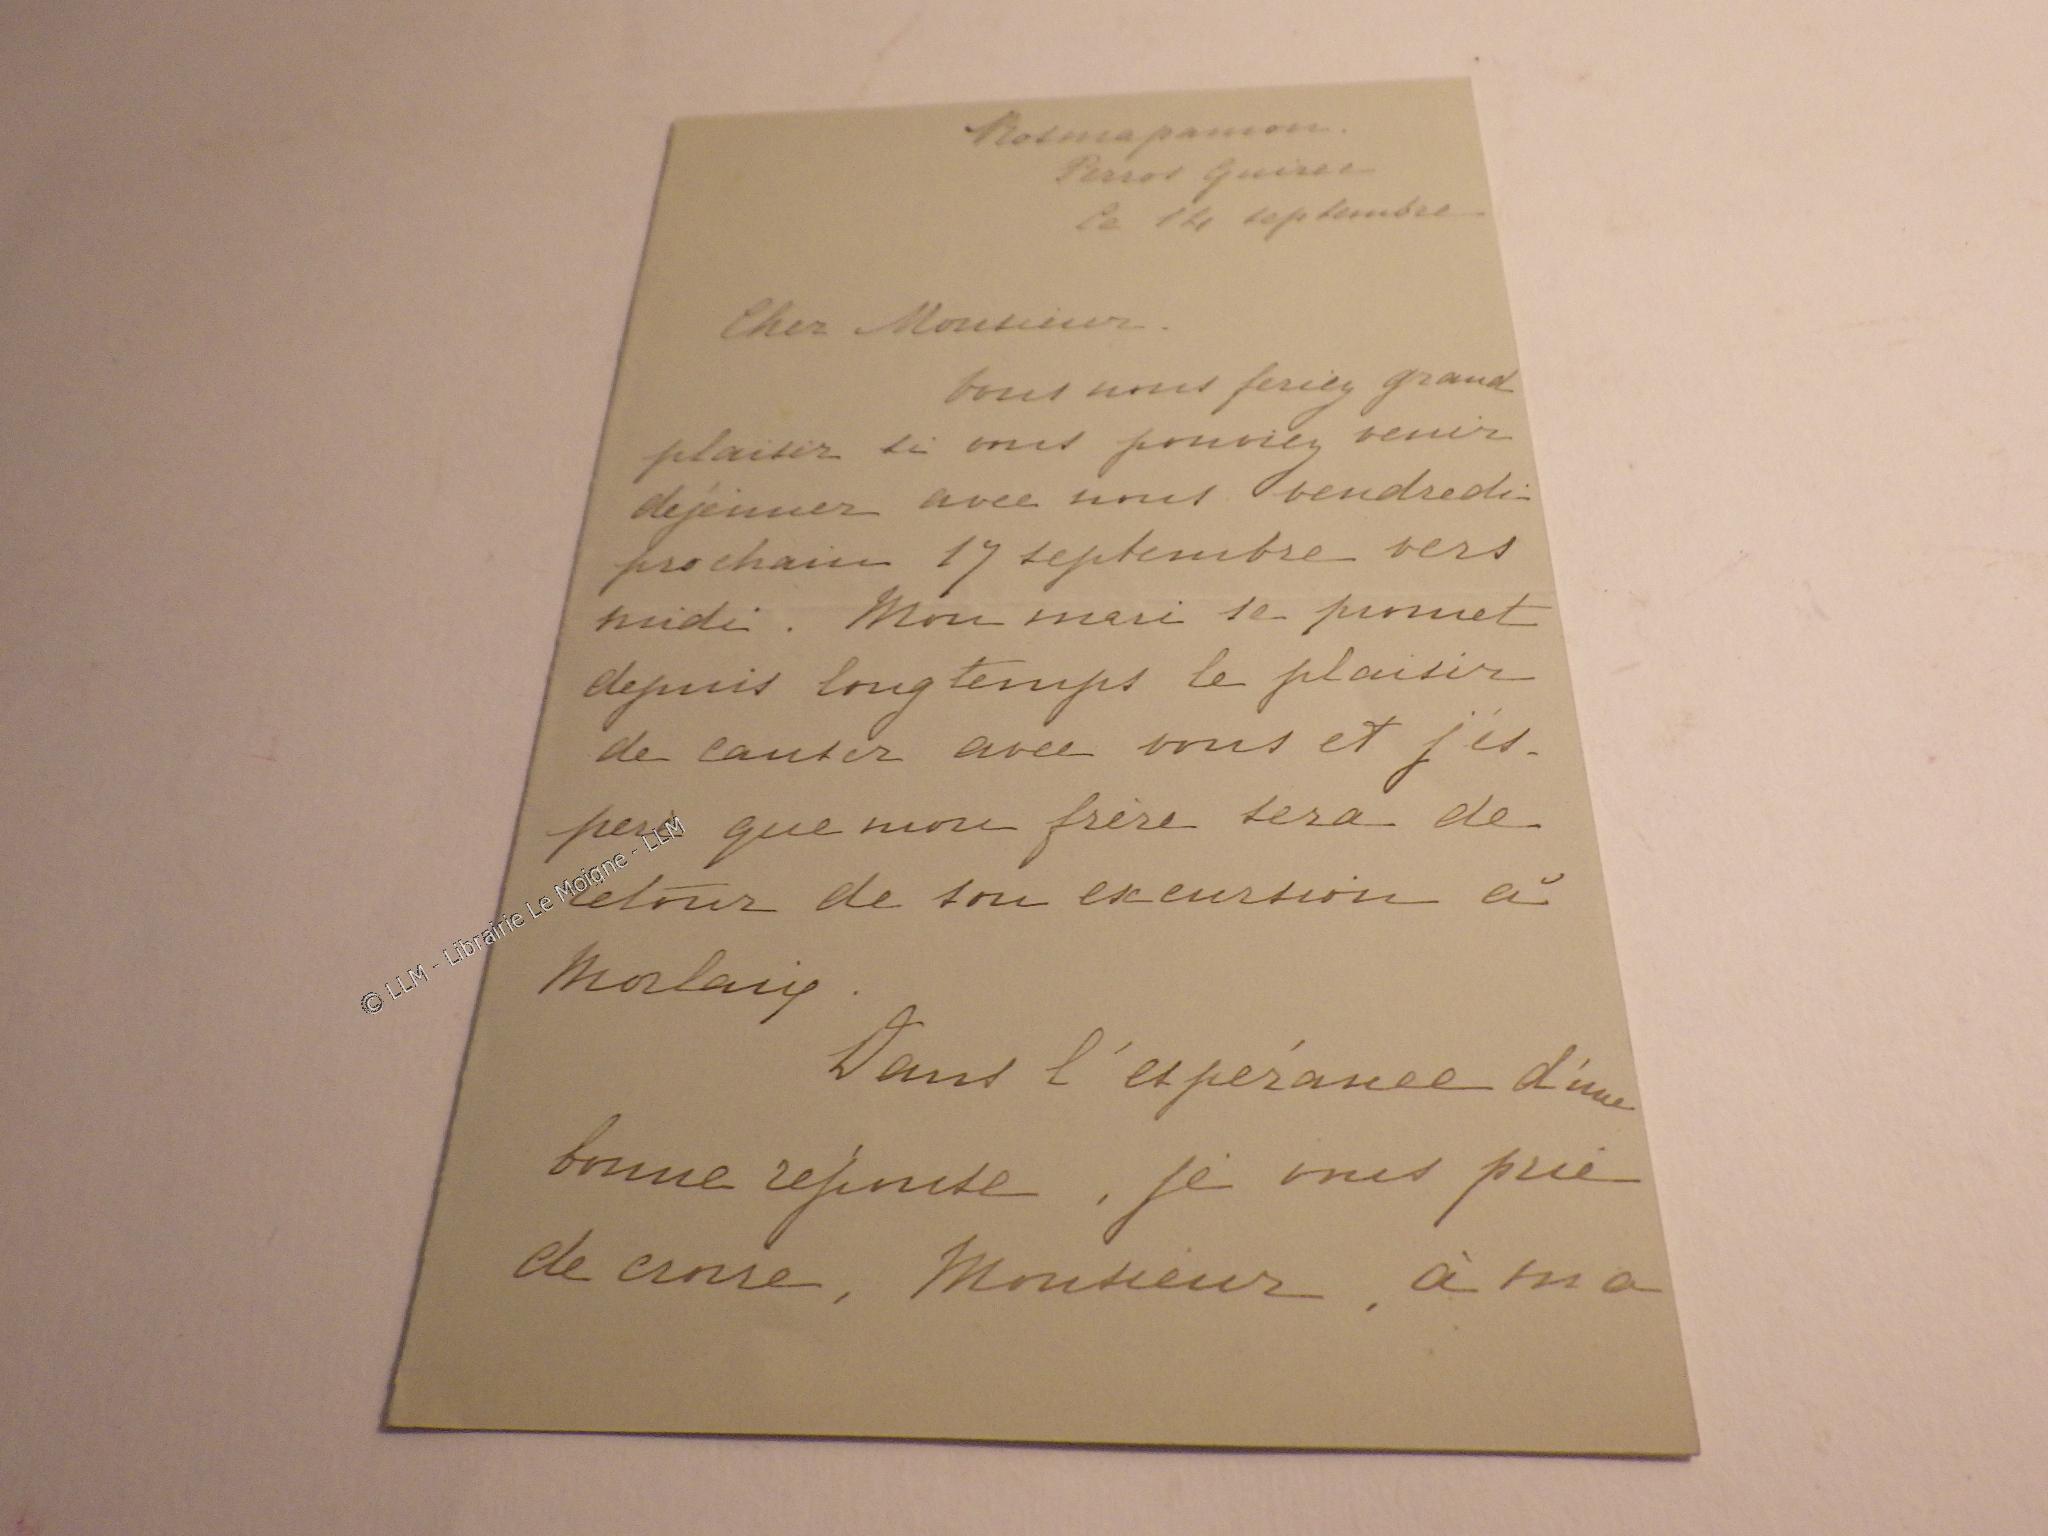 Rosmapamon.
Perros Guirec
Ce 14 septembre
Cher Monsieur.
Vous nous feriez grand
plaisir si vous pouviez venir
déjeuner avec nous vendredi
prochain 17 septembre vers
midi. Mon mari se promet
depuis longtemps le plaisir
de causer avec vous et j'es-
père que mon frère sera de
retour de son excursion à
Morlaix.
Dans l'espérance d'une
bonne réponse, je vous prie
de croire, Monsieur, à ma
© LLM - Librairie Le Moigne - LLM